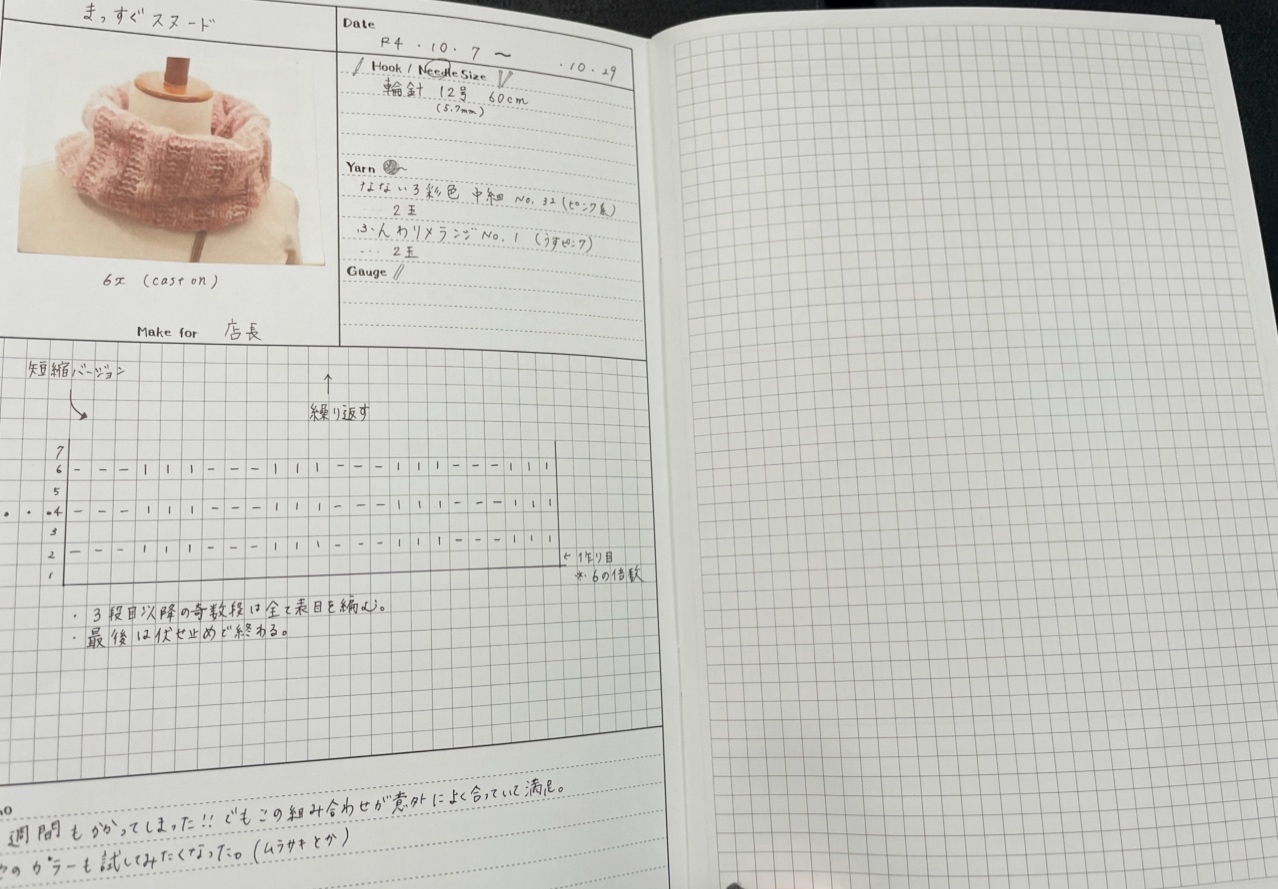 まっすぐスヌード
Date
R4・10・7 〜 ・10・29
Hook / Needle Size
輪針 12号 60cm
(5.7mm)
Yarn
なないろ彩色 中細 No.32(ピンク系)
2玉
ふんわりメランジ No.1 (うすピンク)
… 2玉
Gauge
(cast on)
Make for 店長
短縮バージョン
繰り返す
7
6 - - - | | | - - - | | | - - - | | | - - - | | |
5
4 - - - | | | - - - | | | - - - | | | - - - | | |
3
2 - - - | | | - - - | | | - - - | | | - - - | | |
1
← 作り目
※ 6の倍数
・3段目以降の奇数段は全て表目を編む。
・最後は伏せ止めで終わる。
週間もかかってしまった!! でもこの組み合わせが意外によく合っていて満足。
のカラーも試してみたくなった。(ムラサキとか)